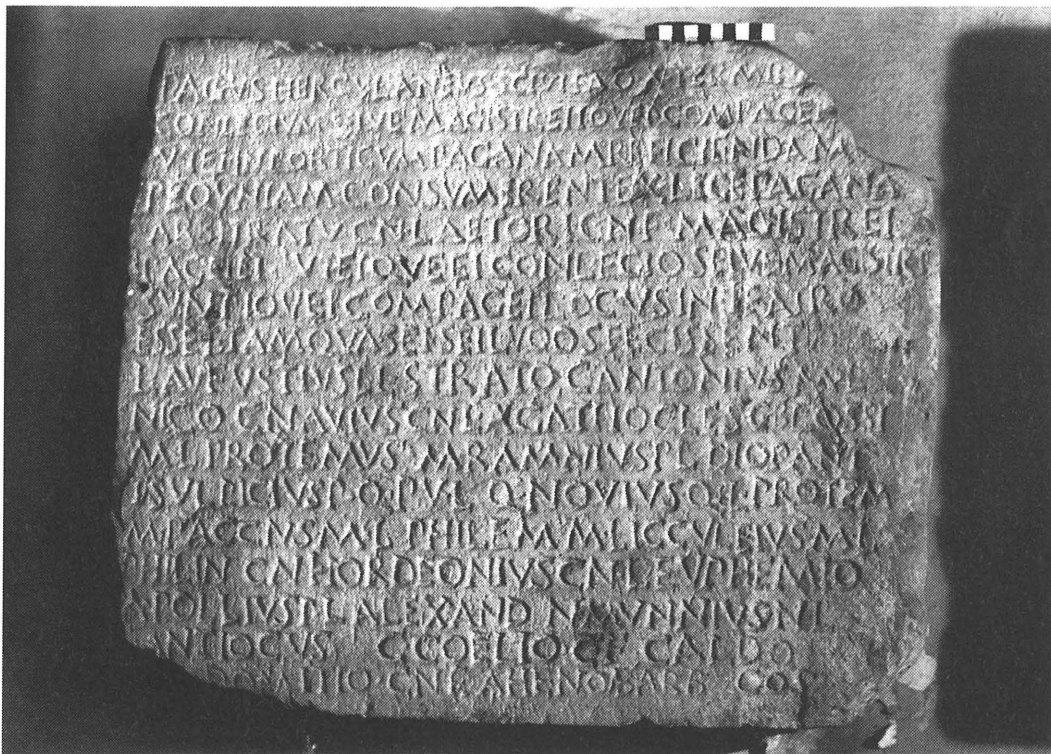 PAGVS HERCVLANEVS SCIVIT A D X TERMINA
CONLEGIVM SEIVE MAGISTREI IOVEI COMPAGEI
VTEI IN PORTICVM PAGANAM REFICIENDAM
PEQVNIAM CONSVMERENT EX LEGE PAGANA
ARBITRATV CN LAETORI CN F MAGISTREI
PAGEIEI VTEIQVE EI CONLEGIO SEIVE MAGISTRI
SVNT IOVEI COMPAGEI LOCVS IN TEATRO
ESSET TAM QVASEI SEI LVDOS FECISSENT
L AVFVSTIVS L L STRATO C ANTONIVS M L
NICO CN AVIVS CN L AGATHOCLES C BLOSSI
M L PROTEMVS M RAMNIVS P L DIOPANT
T SVLPICIVS P Q PV L Q NOVIVS Q L PROTEM
M PACCIVS M L PHILEM M LICCVLEIVS M L
PHILIN CN HORDEONIVS CN L EVPHEMIO
A POLLIVS P L ALEXAND N MVNNIVS N L
ANTIOCVS C COELIO C F CALDO
DOMITIO CN F AHENOBARB COS